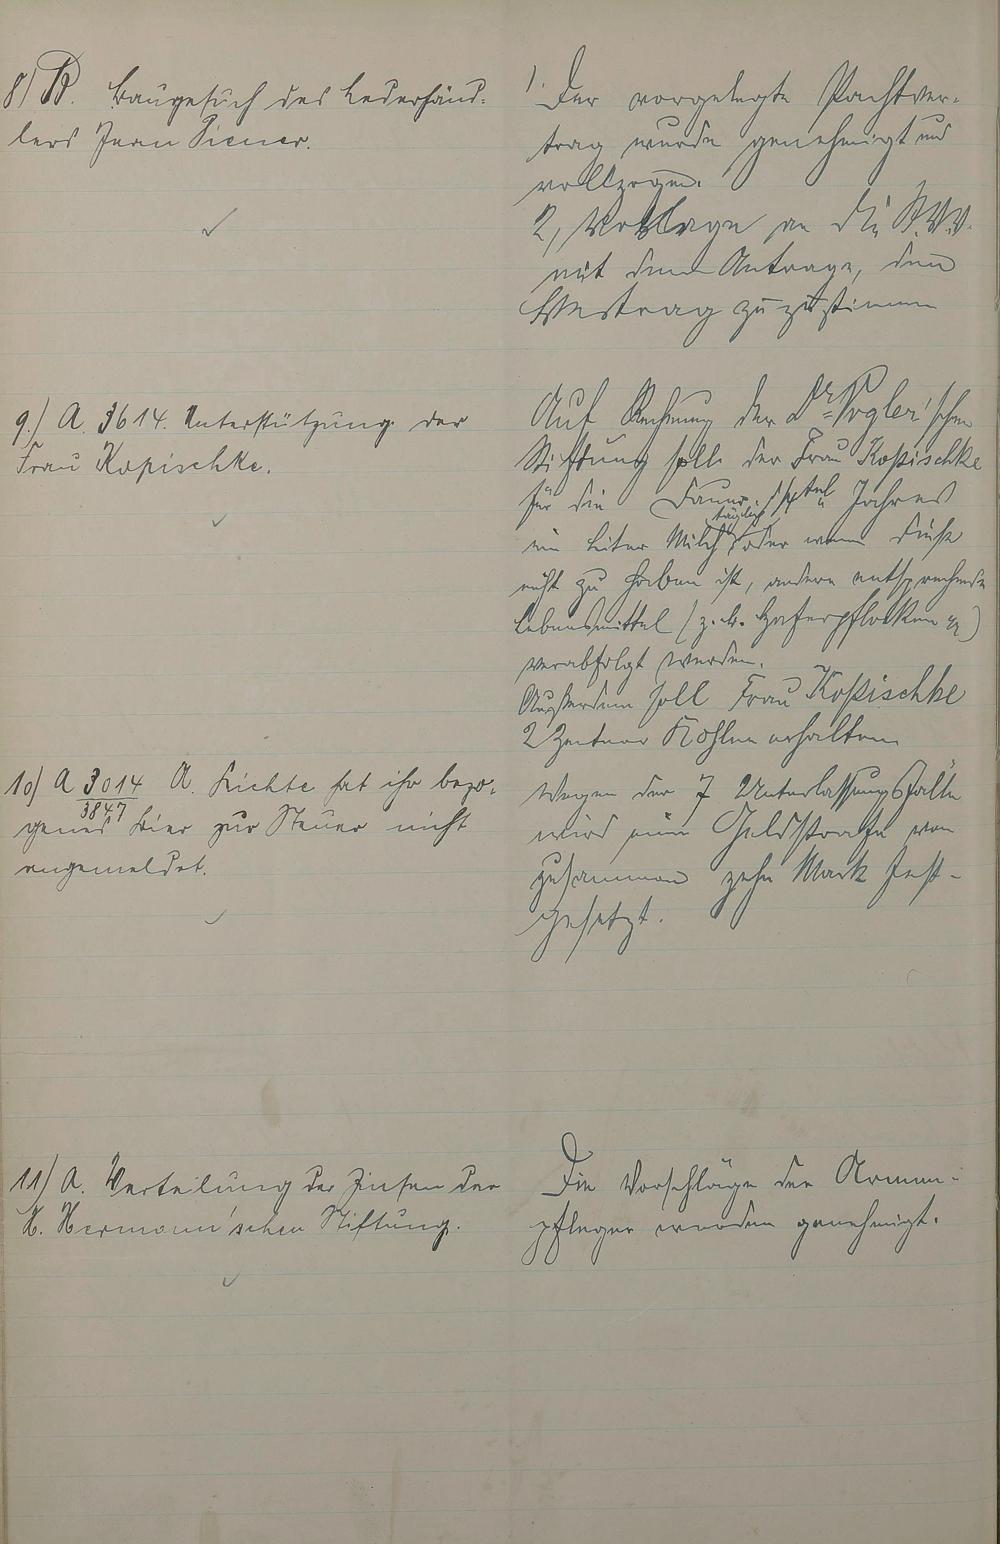 8) B. Baugesuch des Lederhänd-
lers Jean Diener.
1. Der vorgelegte Pachtver-
trag wurde genehmigt und
vollzogen.
2, Vorlage an die St.V.V.
mit dem Antrage, dem
Vertrag zuzustimmen
9.) A. 3614. Unterstützung der
Frau Kopischke.
Auf Rechnung der Dr. Vogler'schen
Stiftung soll der Frau Kopischke
für die Dauer Jahres
ein Liter Milch täglich oder wenn diese
nicht zu haben ist, andere entsprechende
Lebensmittel (z.B. Haferpflocken )
verabfolgt werden.
Außerdem soll Frau Kopischke
2 Zentner Kohlen erhalten
10) A 3014 A. Lichte hat ihr bezo-
3847
genes Bier zur Steuer nicht
angemeldet.
Wegen der 7 Unterlassungsfälle
wird eine Geldstrafe von
zusammen zehn Mark fest-
gesetzt.
11) A. Verteilung der Zinsen der
H. Hermann'schen Stiftung.
Die Vorschläge der Armen-
pfleger wurden genehmigt.